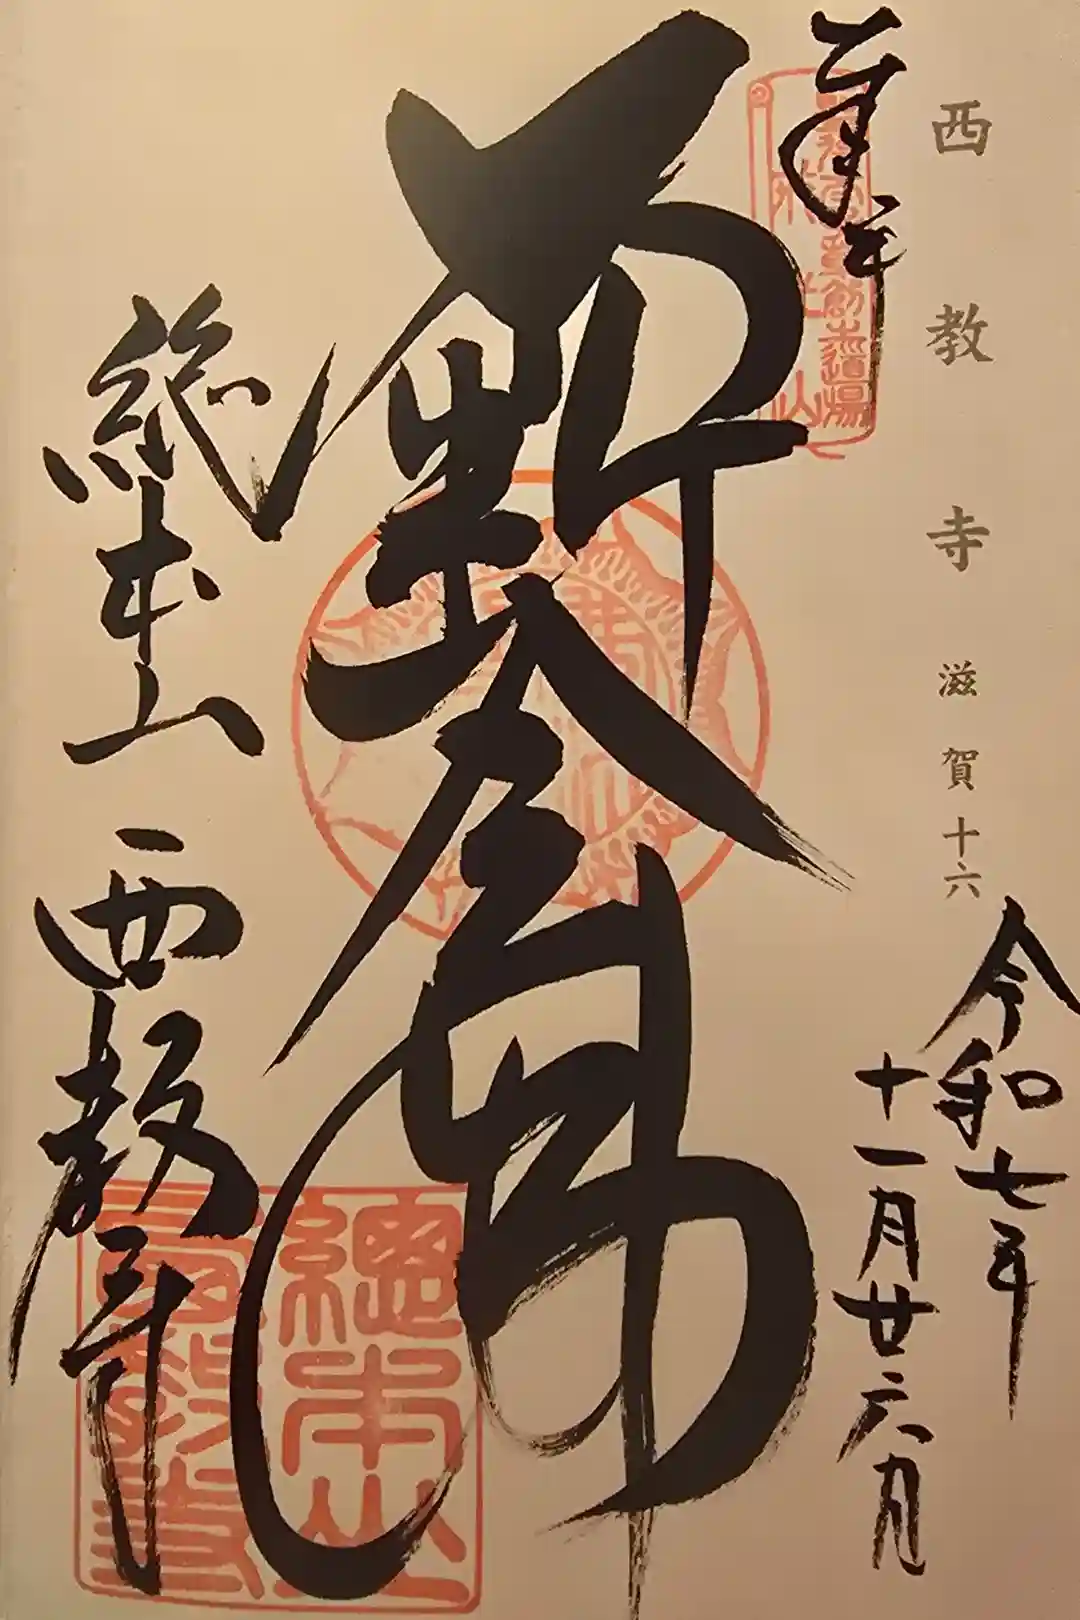 西教寺 滋賀十六
奉拝
令和七年
十一月廿六日
不断念佛
総本山 西教寺
總本山
西教寺